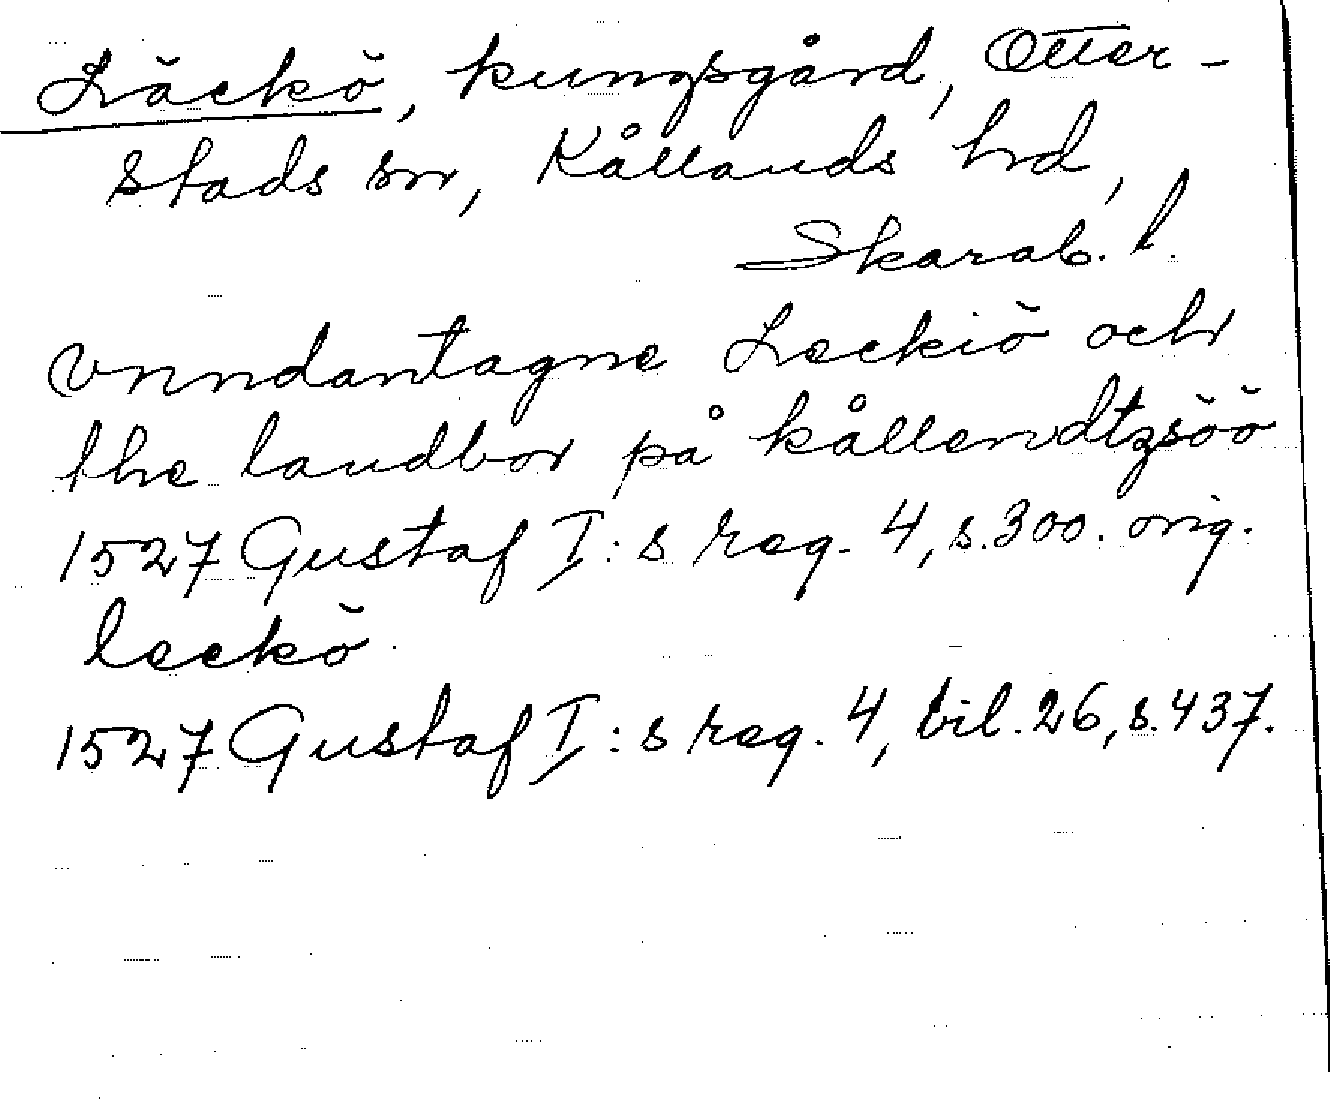 Läckö, kungsgård, Otter-
stads sn, Kållands hd,
Skarab. l.
vnndantagne Leckiö och
the landbor på kållendtzsöö
1527 Gustaf I:s reg. 4, s. 300. orig.
leckö
1527 Gustaf I:s reg. 4, bil. 26, s. 437.